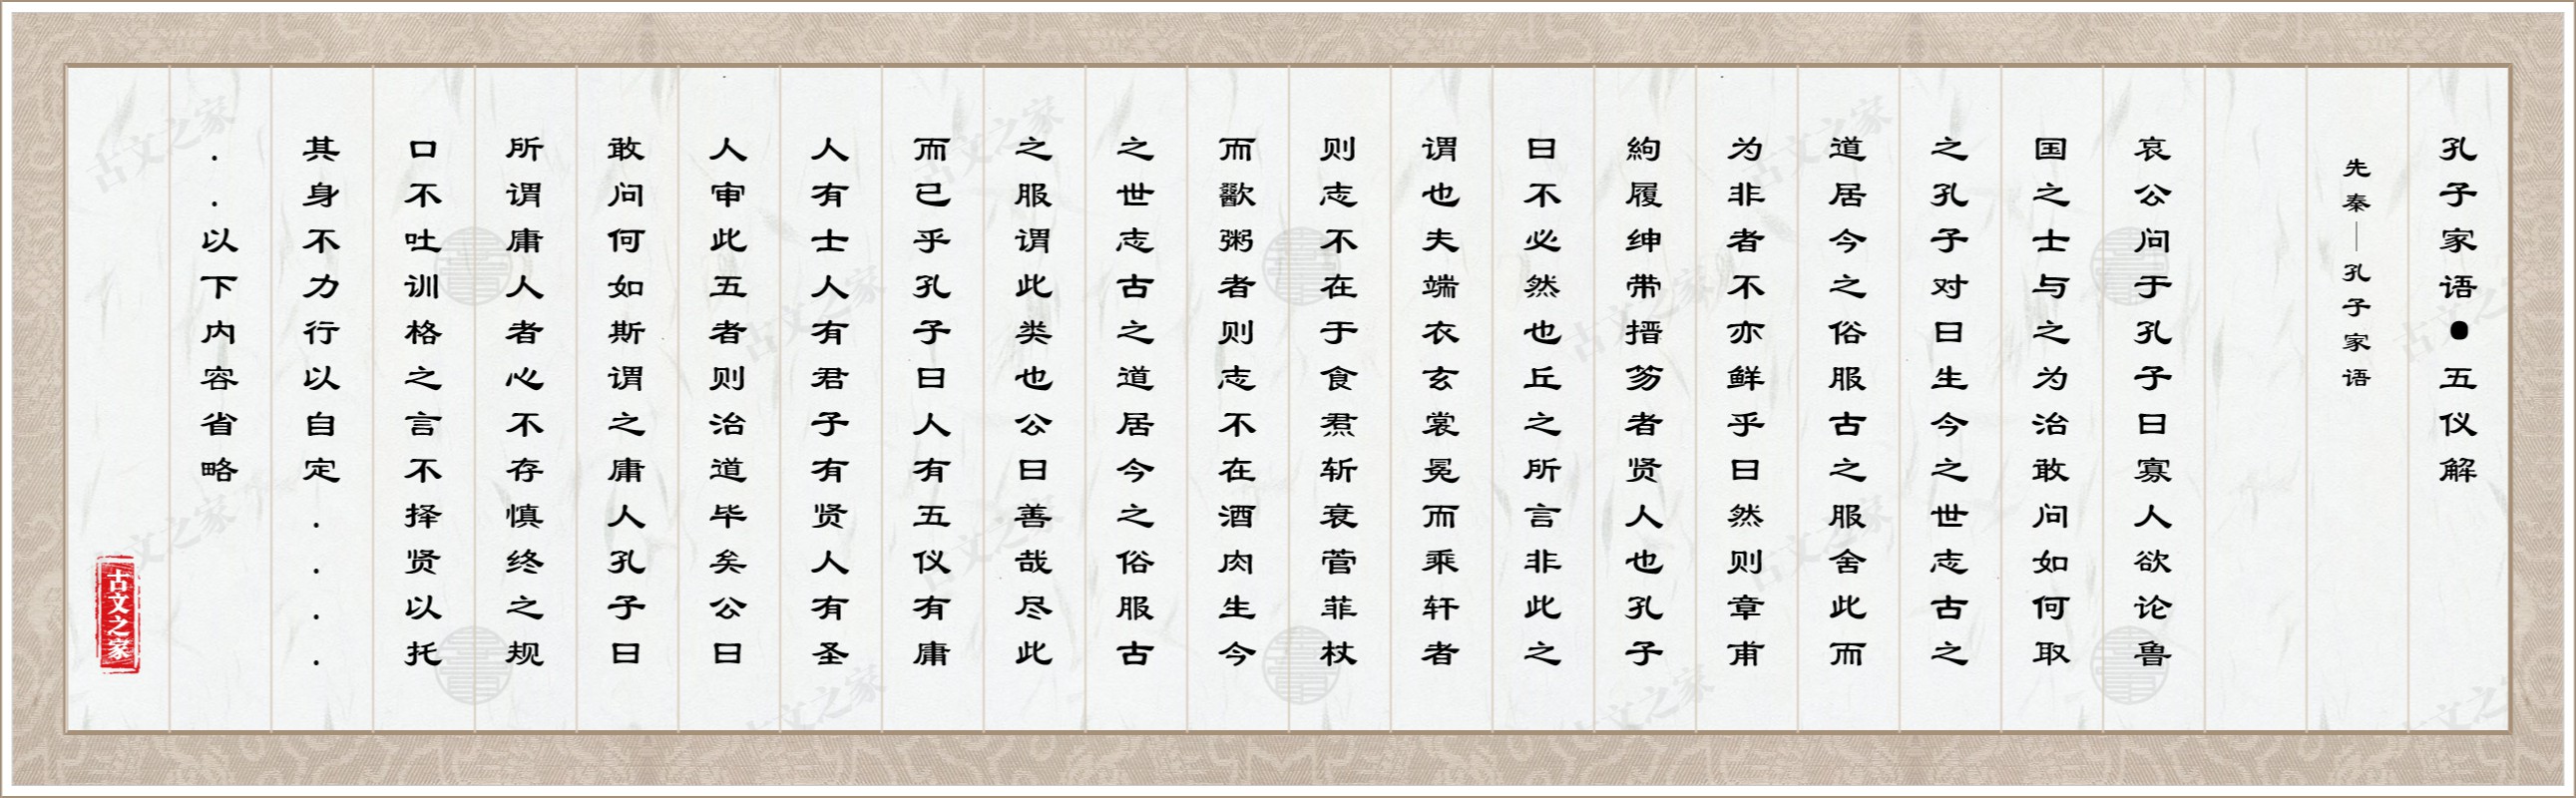 孔子家语●五仪解
先秦—孔子家语
哀公问于孔子曰寡人欲论鲁
国之士与之为治敢问如何取
之孔子对曰生今之世志古之
道居今之俗服古之服舍此而
为非者不亦鲜乎曰然则章甫
絇履绅带搢笏者贤人也孔子
曰不必然也丘之所言非此之
谓也夫端衣玄裳冕而乘轩者
则志不在于食焄斩衰菅菲杖
而歠粥者则志不在酒肉生今
之世志古之道居今之俗服古
之服谓此类也公曰善哉尽此
而已乎孔子曰人有五仪有庸
人有士人有君子有贤人有圣
人审此五者则治道毕矣公曰
敢问何如斯谓之庸人孔子曰
所谓庸人者心不存慎终之规
口不吐训格之言不择贤以托
其身不力行以自定....
..以下内容省略
古文之家